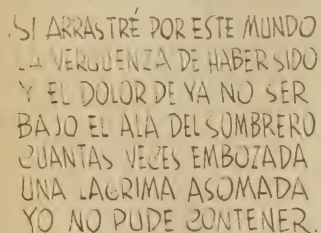 SI ARRASTRÉ POR ESTE MUNDO
LA VERGUENZA DE HABER SIDO
Y EL DOLOR DE YA NO SER
BAJO EL ALA DEL SOMBRERO
CUANTAS VECES EMBOZADA
UNA LAGRIMA ASOMADA
YO NO PUDE CONTENER.